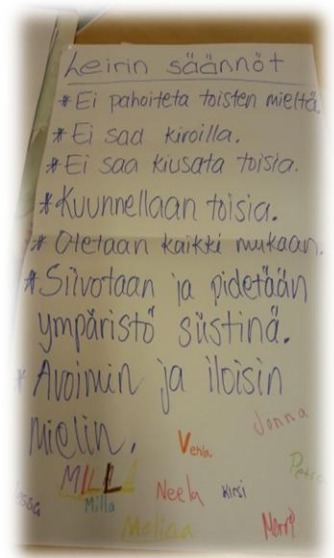 Leirin säännöt
* Ei pahoiteta toisten mieltä.
* Ei saa kiroilla.
* Ei saa kiusata toisia.
* Kuunnellaan toisia.
* Otetaan kaikki mukaan.
* Siivotaan ja pidetään
ympäristö siistinä.
* Avoimin ja iloisin
mielin.
Jonna
Venla
MILLA
Milla
Neela Kirsi